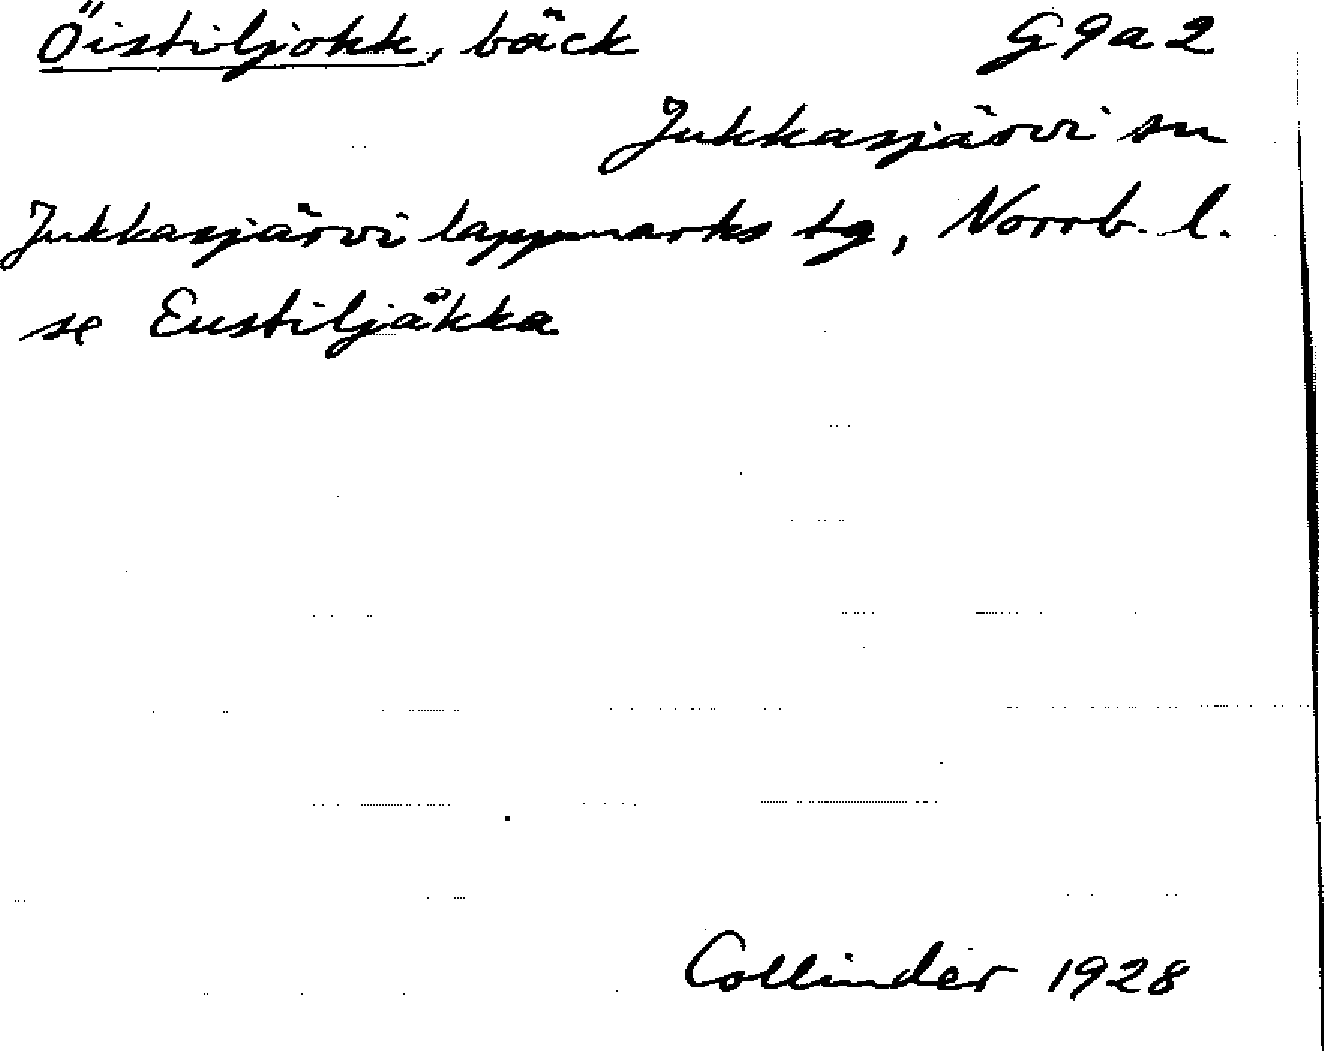 Öistiljokk, bäck G9a2
Jukkasjärvi sn
Jukkasjärvi lappmarks tg, Norrb. l.
se Eustiljåkka
Collinder 1928